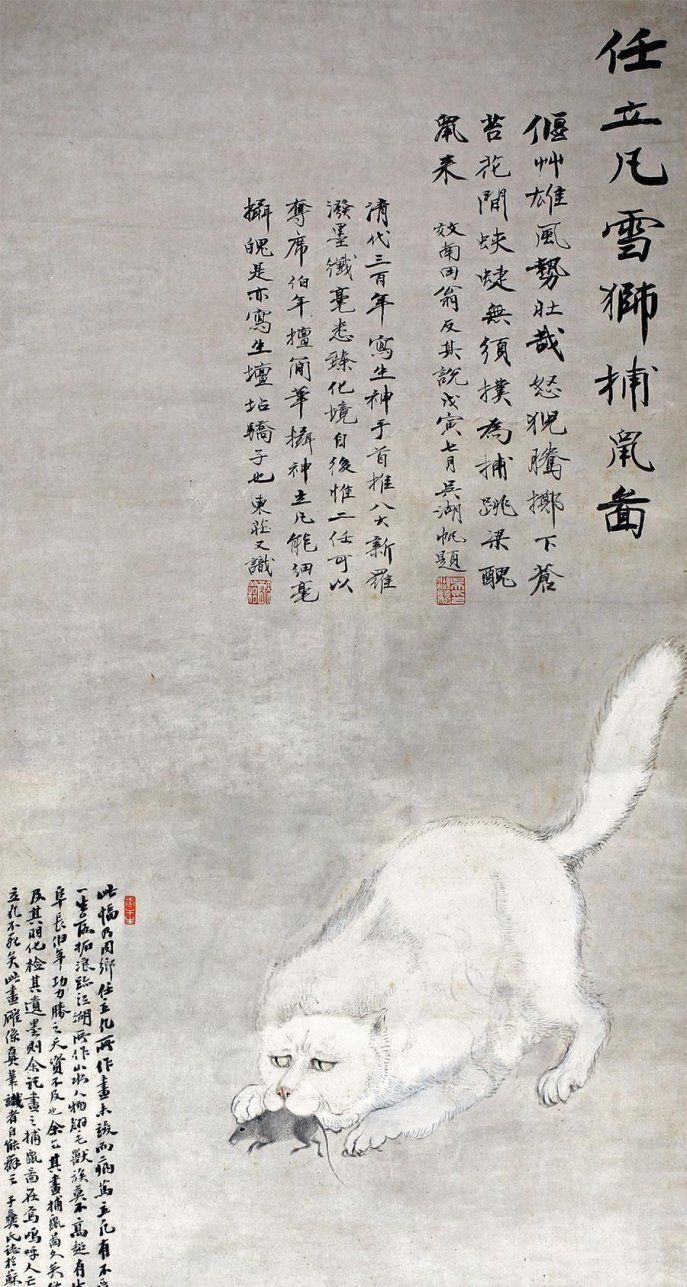 任立凡雪獅捕鼠啚
偃艸雄風勢壯哉怒猊騰擲下蒼
苔花間蛺蜨無須撲為捕跳梁醜
鼠来 效南田翁反其說戊寅七月吳湖帆題
清代三百年寫生神手首推八大新羅
潑墨纖毫悉臻化境自後惟二任可以
奪席伯年擅簡筆攝神立凡能細毫
攝魄是亦寫生壇坫驕子也 東莊又識
此幅乃同鄉任立凡所作畫未竣而病篤立凡有不
一生落拓浪跡江湖所作山水人物翎毛獸族莫不高超有
阜長伯年功力勝之天資不及也余乞其畫捕鼠啚久矣
及其羽化檢其遺墨則余託畫之捕鼠啚在焉嗚呼人亡
立凡不死矣此畫確係真筆識者自能辨之 子彝氏誌於蘇